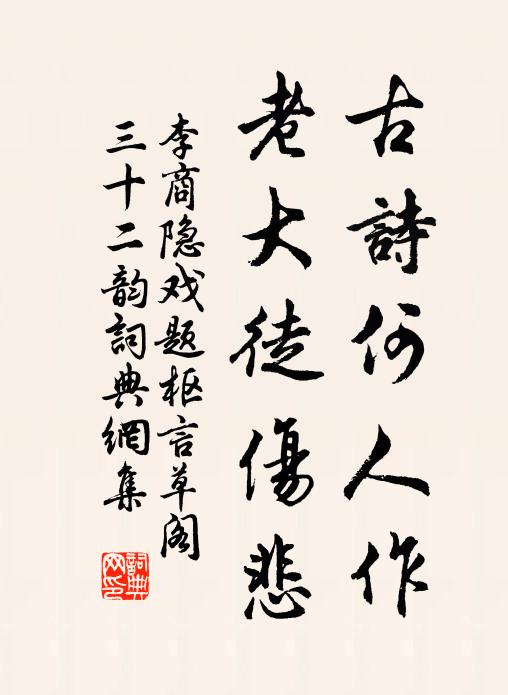 古詩何人作
老大徒傷悲
李商隐戏题枢言草阁
三十二韵詞典網集
詞典
网印